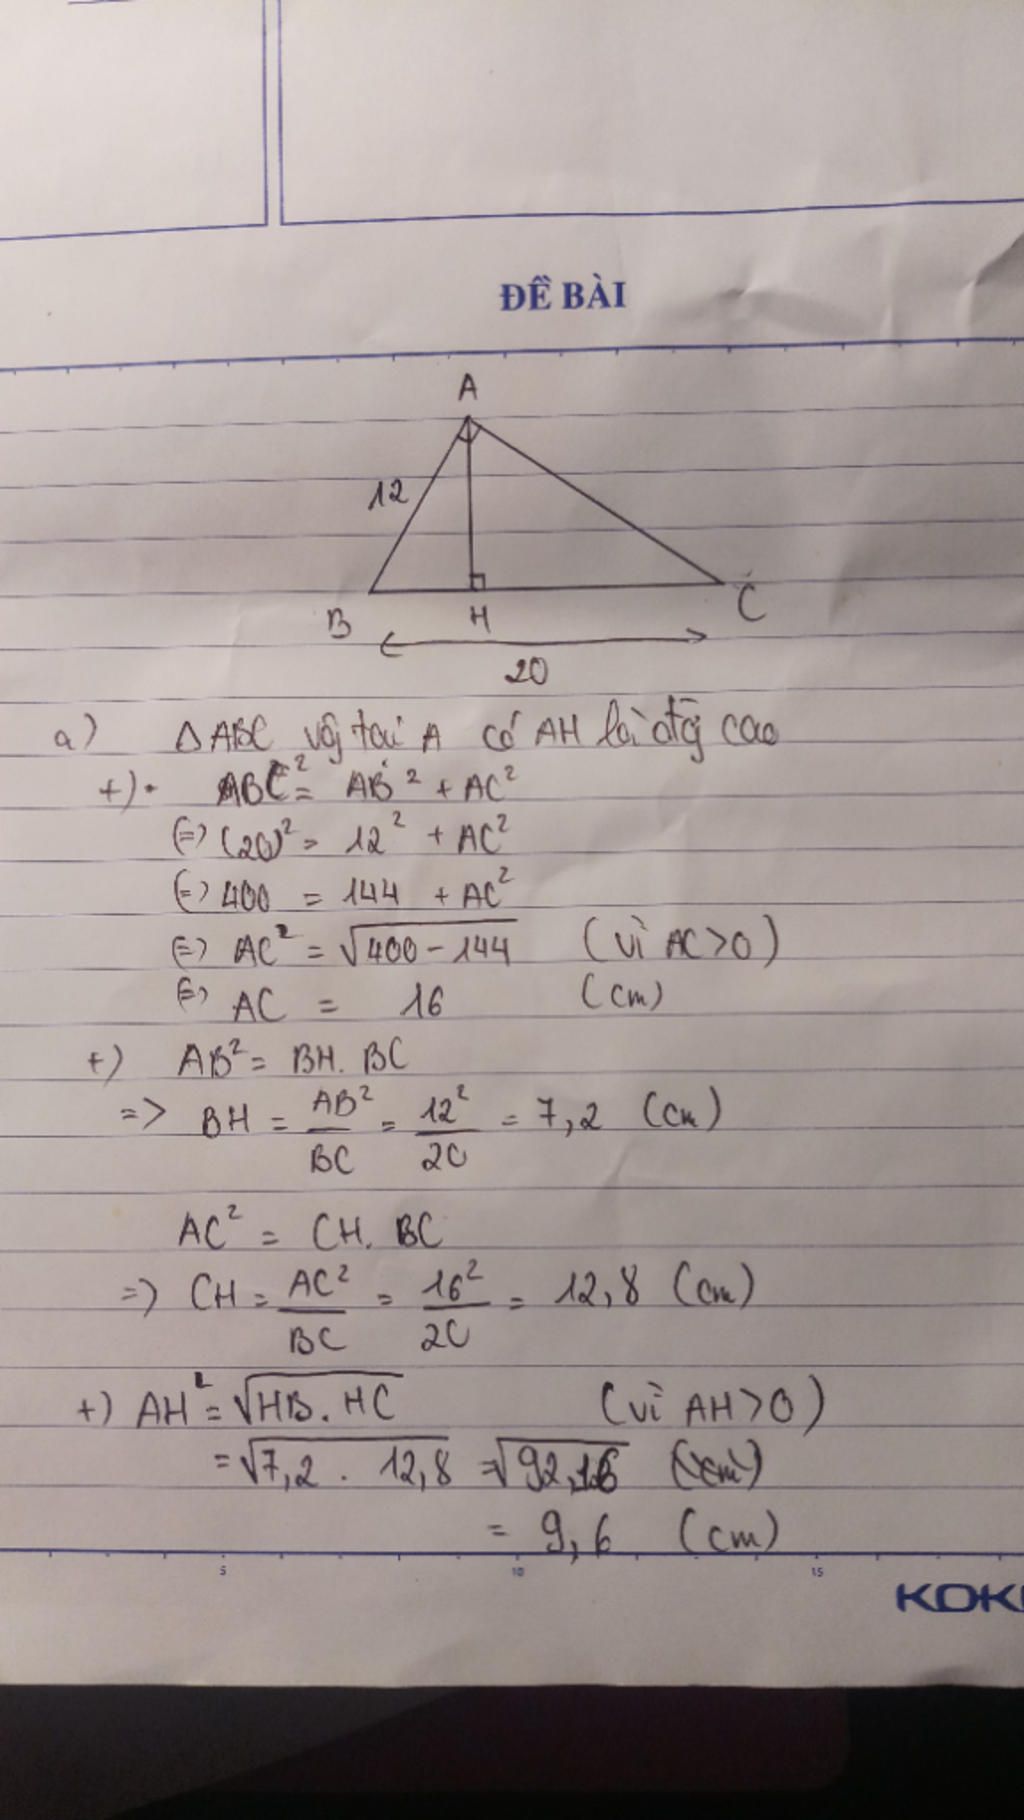 ĐỀ BÀI
A
12
B H C
20
a) ΔABC vg tại A có AH là đg cao
+) BC² = AB² + AC²
(=) (20)² = 12² + AC²
(=) 400 = 144 + AC²
(=) AC² = √400 - 144 (vì AC > 0)
(=) AC = 16 (cm)
+) AB² = BH. BC
=> BH = AB²/BC = 12²/20 = 7,2 (cm)
AC² = CH. BC
=) CH = AC²/BC = 16²/20 = 12,8 (cm)
+) AH² = √HB. HC (vì AH > 0)
= √7,2 . 12,8 = √92,16 (cm)
= 9,6 (cm)
5 10 15